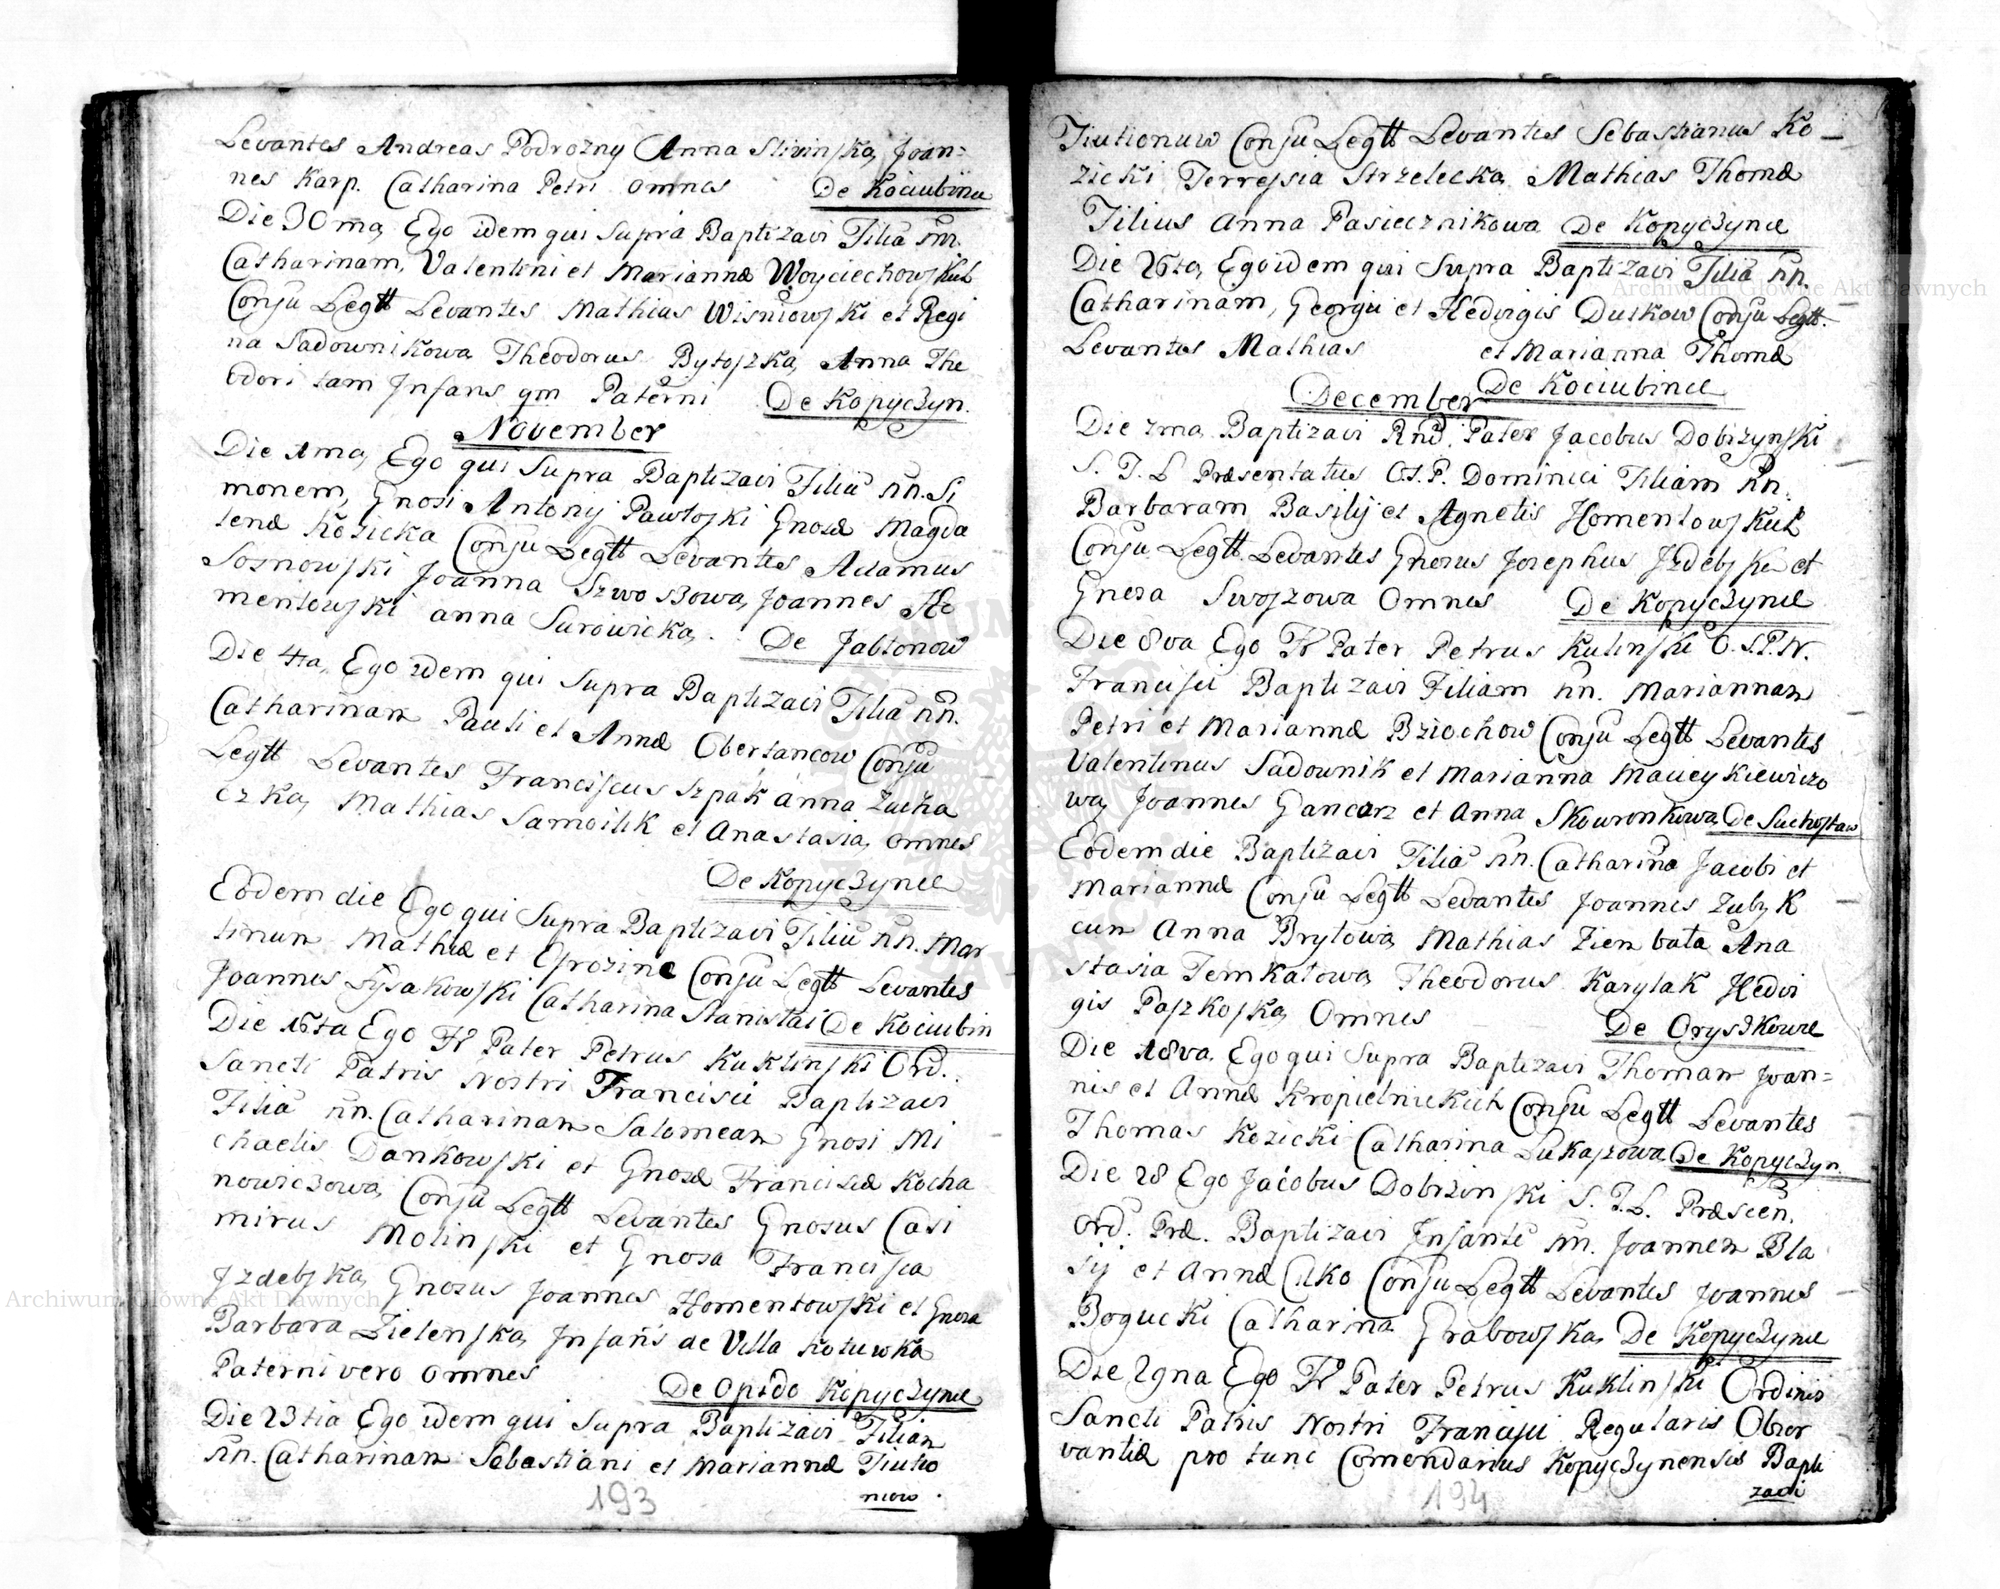 Levantes Andreas Podrozny Anna Slivinska, Joan=
nes Karp. Catharina Petri omnes De Kociubince
Die 30ma, Ego idem qui Supra Baptizavi Filiā nn.
Catharinam, Valentini et Mariannæ Woyciechowskich
Conju Legtt Levantes Mathias Wisniowski et Regi
na Sadownikowa Theodorus Bytoszka, Anna The
odori tam Infans qm Paterni De Kopyczyn.
November
Die 1ma, Ego qui Supra Baptizavi Filiū nn. Si
monem, Gnosi Antonij Pawłoski Gnosæ Magda
lenæ Kozicka Conju Legtt Levantes Adamus
Sosnowski Joanna Szwoszowa, Joannes Ho
mentowski anna Surowicka, De Jabłonow
Die 4ta, Ego idem qui Supra Baptizavi Filiā nn.
Catharinam Pauli et Annæ Obertancow Conju
Legtt Levantes Franciscus Szpak anna Zacha
czka, Mathias Samoilik et Anastasia, omnes
De Kopyczynce
Eodem die Ego qui Supra Baptizavi Filiū nn. Mar
tinum Mathiæ et Efrozinæ Conju Legtt Levantes
Joannes Łysakowski Catharina Stanisłai De Kociubin
Die 16ta Ego Fr Pater Petrus Kuklinski Ord.
Sancti Patris Nostri Francisci Baptizavi
Filiā nn. Catharinam Salomeam Gnosi Mi
chaelis Dankowski et Gnosæ Franciscæ Kocha
nowiczowa, Conju Legtt Levantes Gnosus Casi
mirus Molinski et Gnosa Francisca
Jzdebska, Gnosus Joannes Homentowski et Gnosa
Barbara Zielenska, Infans de Villa Kotuwka
Paterni vero omnes De Opido Kopyczynce
Die 23tia Ego idem qui Supra Baptizavi Filiam
nn. Catharinam Sebastiani et Mariannæ Tiutio
now
193
Tiutionuw Conju Legtt Levantes Sebastianus Ko
zicki Terressia Strzelecka, Mathias Thomæ
Filius Anna Pasiecznikowa De Kopyczynce
Die 26ta, Ego idem qui Supra Baptizavi Filiā nn
Catharinam, Georgii et Hedvigis Dutkow Conju Legtt.
Levantes Mathias et Marianna Thomæ
De Kociubince
December
Die 7ma Baptizavi Rnd. Pater Jacobus Dobrzynski
S. T. L Præsentatus O.S.P. Dominici Filiam nn.
Barbaram Basilij et Agnetis Homentowskich
Conju Legtt. Levantes Gnosus Josephus Jzdebski et
Gnosa Swoszowa Omnes De Kopyczynce
Die 8va Ego Fr Pater Petrus Kulinski O. S.P.N.
Francisci Baptizavi Filiam nn. Mariannam
Petri et Mariannæ Bziochow Conju Legtt Levantes
Valentinus Sadownik et Marianna Macieykiewiczo
wa, Joannes Gancarz et Anna Skowronkowa, De Suchostaw
Eodem die Baptizavi Filiā nn. Catharinā Jacobi et
Mariannæ Conju Legtt Levantes Joannes Zubyk
cum Anna Brylowa, Mathias Ziembata Ana
stasia Temkatowa, Theodorus Karylak Hedvi
gis Paszkoska, Omnes De Oryszkowce
Die 18va. Ego qui Supra Baptizavi Thomam Joan=
nis et Annæ Kropielnickich Conju Legtt Levantes
Thomas Kozicki Catharina Łukaszowa De Kopyczyn.
Die 28 Ego Jacobus Dobrzinski S. T.L. Præsen.
Ord. Præ. Baptizavi Infantē nn. Joannem Bla
sij et Annæ Cuko Conju Legtt Levantes Joannes
Bogucki Catharina Grabowska, De Kopyczynce
Die 29na Ego Fr Pater Petrus Kuklinski Ordinis
Sancti Patris Nostri Francisci Regularis Obser
vantiæ pro tunc Comendarius Kopyczynensis Bapti
zavi
194
Archiwum Główne Akt Dawnych
Archiwum Główne Akt Dawnych